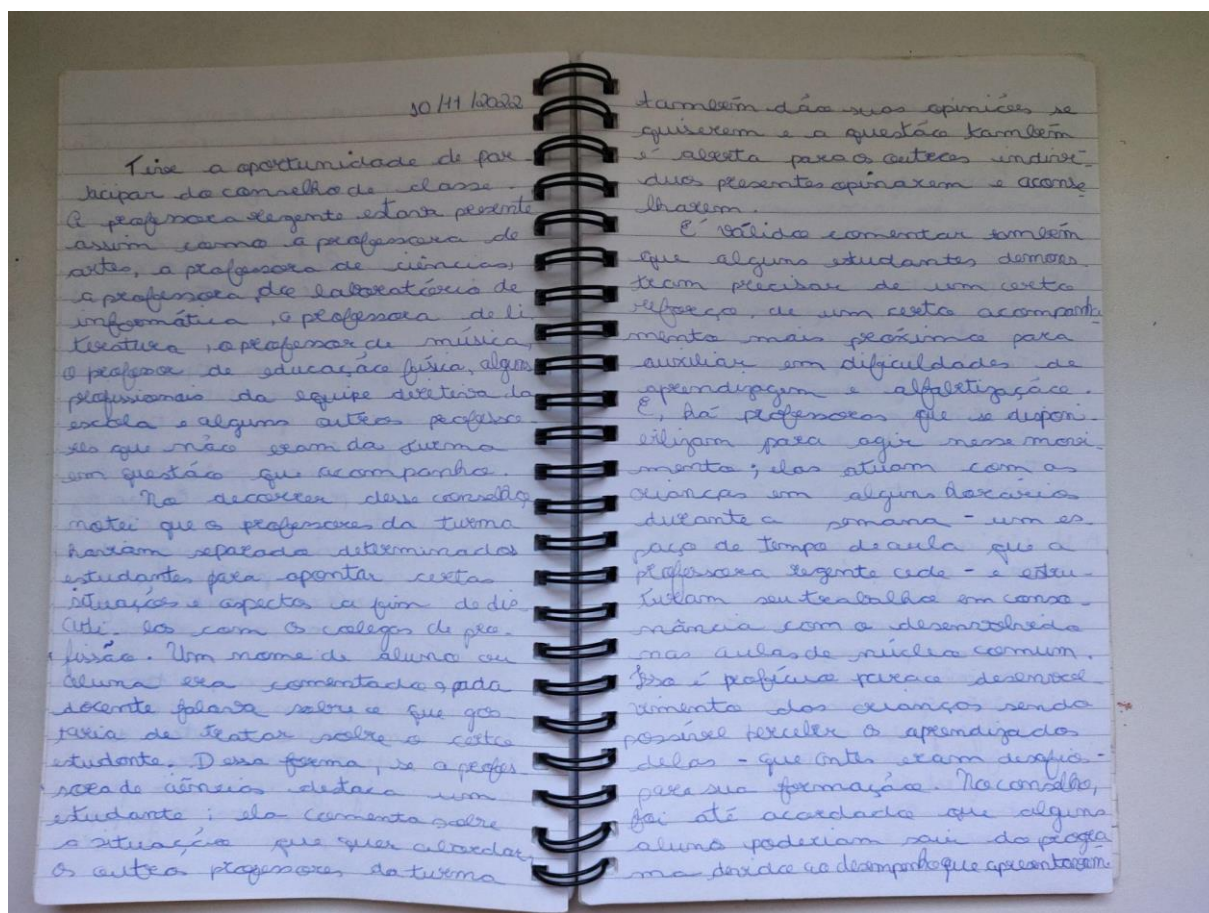 10/11/2022
Tive a oportunidade de par-
ticipar do conselho de classe.
A professora regente estava presente
assim como a professora de
artes, a professora de ciências,
a professora do laboratório de
informática, a professora de li
teratura, o professor de música,
o professor de educação física, alguns
profissionais da equipe diretiva da
escola e alguns outros professo
res que não eram da turma
em questão que acompanho.
No decorrer desse conselho,
notei que os professores da turma
haviam separado determinados
estudantes para apontar certas
situações e aspectos a fim de dis
cuti-los com os colegas de pro-
fissão. Um nome de aluno ou
aluna era comentado e cada
docente falava sobre o que gos
taria de tratar sobre o certo
estudante. Dessa forma, se a profes
sora de ciências destaca um
estudante; ela comenta sobre
a situação que quer abordar,
os outros professores da turma
também dão suas opiniões se
quiserem e a questão também
é aberta para os outros indiví-
duos presentes opinarem e aconse
lharem.
É válido comentar também
que alguns estudantes demons
tram precisar de um certo
reforço, de um certo acompanha
mento mais próximo para
auxiliar em dificuldades de
aprendizagem e alfabetização.
E, há professoras que se disponi-
bilizam para agir nesse movi
mento; elas atuam com as
crianças em alguns horários
durante a semana - um es
paço de tempo de aula que a
professora regente cede - e estru-
turam seu trabalho em conso-
nância com o desenvolvido
nas aulas de núcleo comum.
Isso é profícuo para o desenvol
vimento das crianças sendo
possível perceber os aprendizados
delas - que antes eram desafios -
para sua formação. No conselho,
foi até acordado que alguns
alunos poderiam sair do progra
ma devido ao desempenho que apresentavam